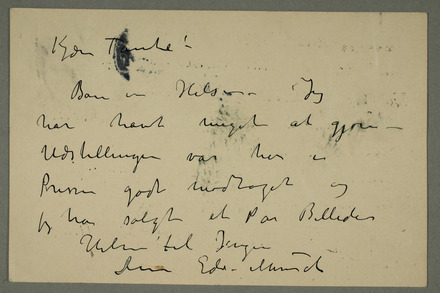 Kjære Tante!
Bare en Hilsen – Jeg
har havt meget at gjøre –
Udstillingen var her i
Pressen godt modtaget og
jeg har solgt et Par Billeder
Hilsen til Inger
Din Edv. Munch